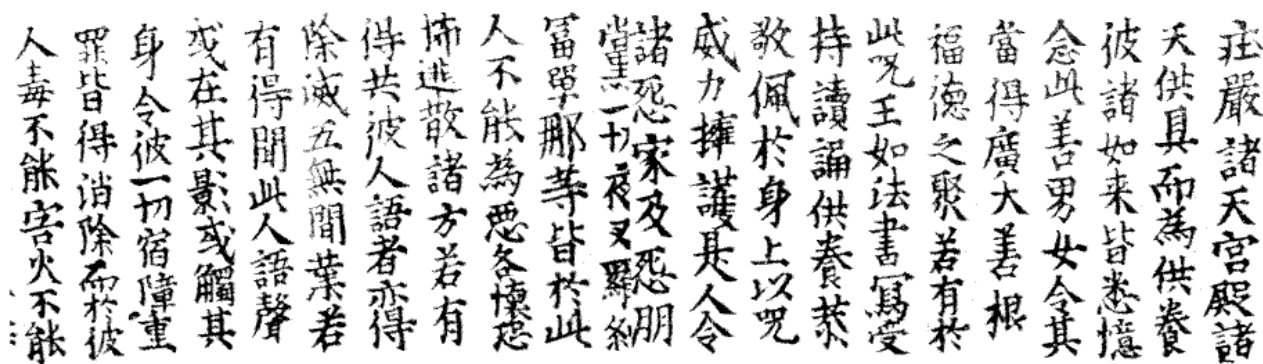 庄嚴諸天宮殿諸
天供具而為供養
彼諸如来皆悉憶
念此善男女令其
當得廣大善根
福德之聚若有於
此呪王如法書寫受
持讀誦供養恭
敬佩於身上以呪
威力擁護其人令
諸惡家及惡朋
黨一切夜叉羅剎
冨單那等皆於此
人不能為惡各懷恐
怖逃散諸方若有
得共彼人語者亦得
除滅五無間業若
有得聞此人語聲
或在其影或觸其
身令彼一切宿障重
罪皆得消除而於彼
人毒不能害火不能